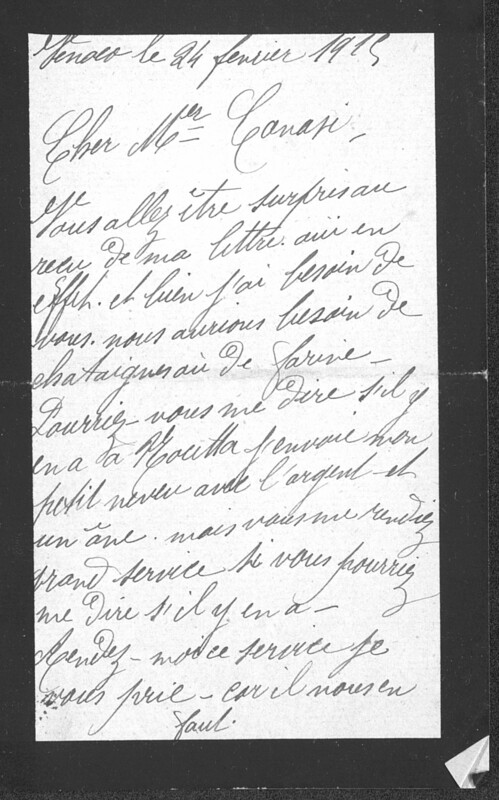 Vendeo le 24 fevrier 1915
Cher Mer Canasi,
Vous allez être surpris au
recu de ma lettre. oui en
effet. et bien j'ai besoin de
vous. nous aurions besoin de
chataignes où de farine -
Pourriez-vous me dire s'il y
en a à j'envoie mon
petit neveu avec l'argent et
un âne. mais vous me rendiez
grand service si vous pourriez
me dire s'il y en a -
Rendez-moi ce service je
vous prie - car il nous en
faut.